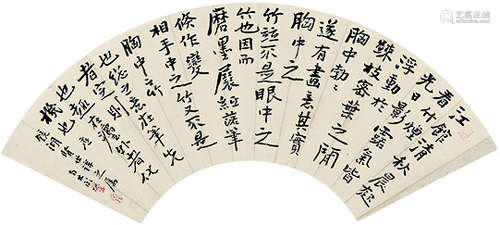 江館清秋晨起
看竹煙
光日影露氣皆
浮動於
疎枝密葉之間
胸中勃勃
遂有畫意其實
胸中之
竹並不是眼中之
竹也因而
磨墨展紙落筆
倏作變
相手中之竹又不是
胸中之竹
也總之意在筆先
者定則
也趣在法外者化
機也